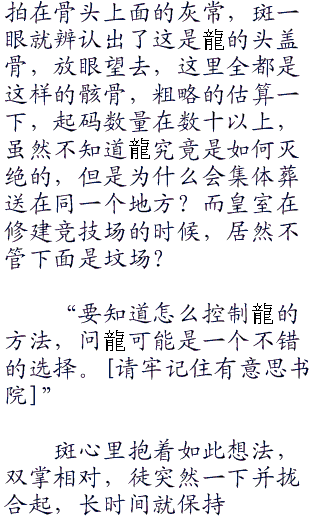 拍在骨头上面的灰常，斑一
眼就辨认出了这是龍的头盖
骨，放眼望去，这里全都是
这样的骸骨，粗略的估算一
下，起码数量在数十以上，
虽然不知道龍究竟是如何灭
绝的，但是为什么会集体葬
送在同一个地方？而皇室在
修建竞技场的时候，居然不
管下面是坟场？
“要知道怎么控制龍的
方法，问龍可能是一个不错
的选择。[请牢记住有意思书
院]”
斑心里抱着如此想法，
双掌相对，徒突然一下并拢
合起，长时间就保持